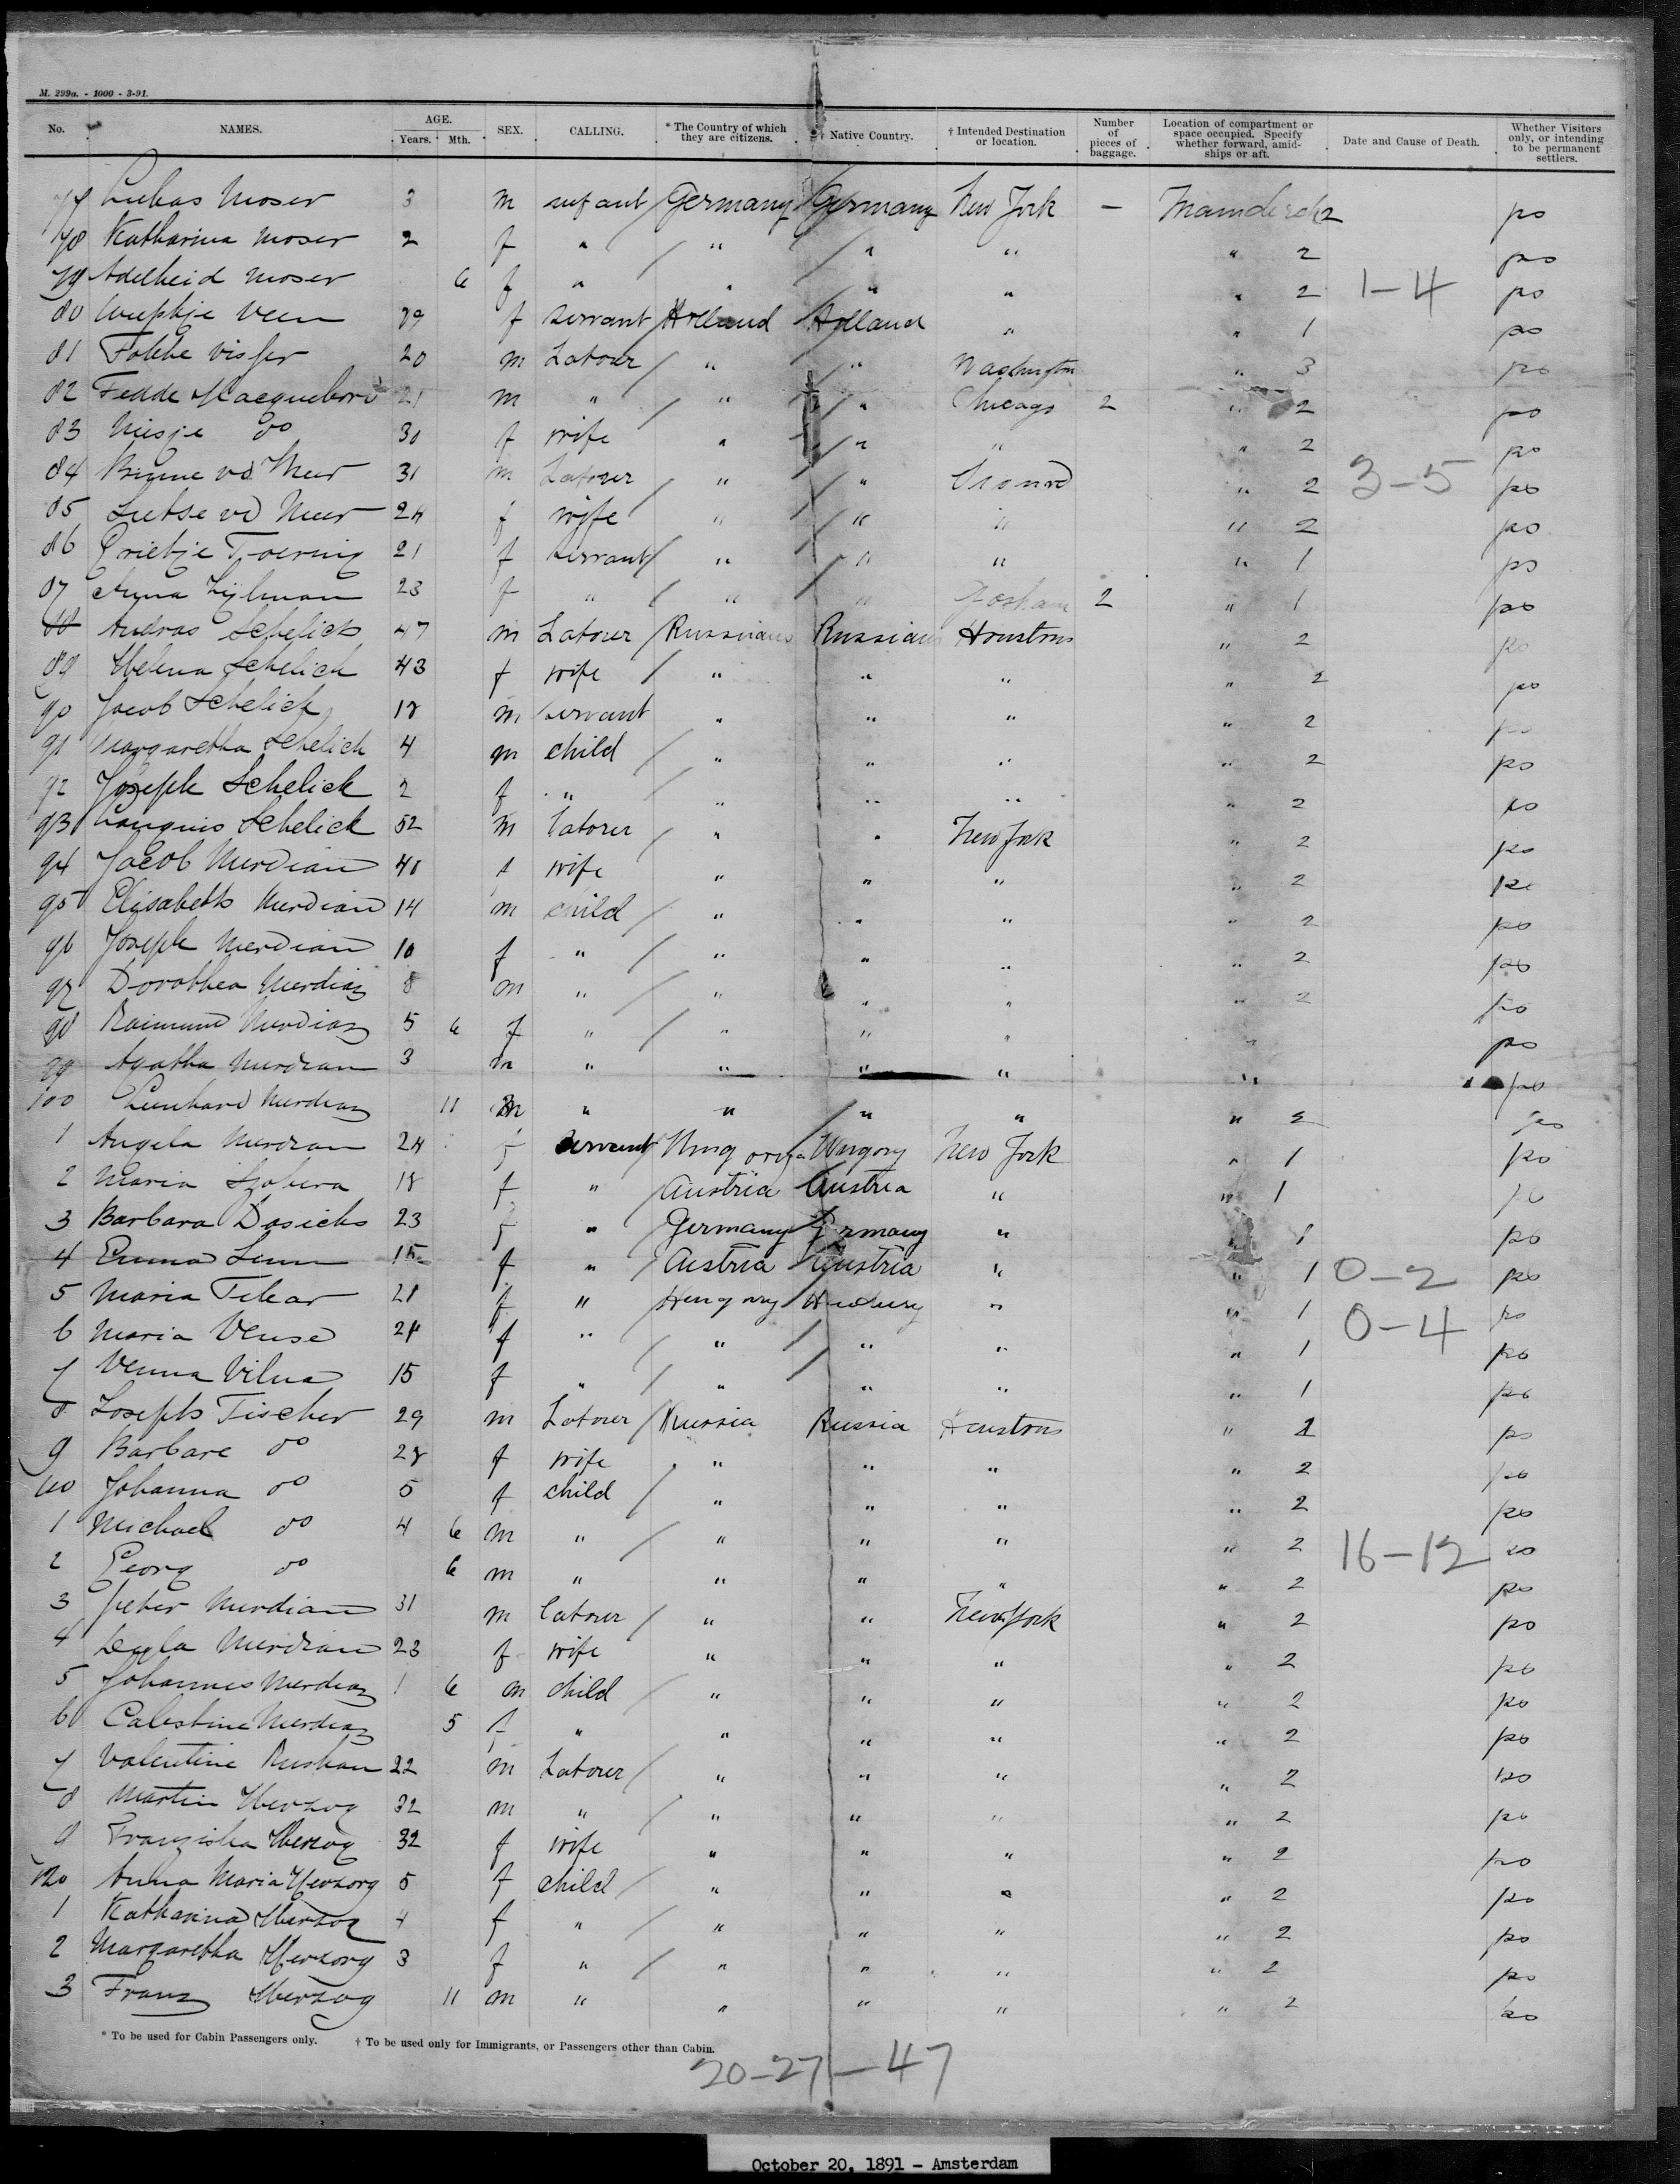 M. 299a. - 1000 - 3-91.
No. NAMES. AGE. Years. Mth. SEX. CALLING. * The Country of which they are citizens. † Native Country. † Intended Destination or location. Number of pieces of baggage. Location of compartment or space occupied. Specify whether forward, amidships or aft. Date and Cause of Death. Whether Visitors only, or intending to be permanent settlers.
Moser 3 m infant Germany Germany New York — 2 po
78 Katharina Moser 2 f " " " " " 2 po
79 Adelheid Moser 6 f " " " " " 2 1-4 po
80 Veen f servant Holland Holland " " 1 po
81 Fokke Visser 20 m Labour " " Washington " 3 po
82 Fedde 21 m " " " Chicago 2 " 2 po
83 do 30 f wife " " " " 2 po
84 vd Meer 31 m Labourer " " " 2 3-5 po
85 vd Meer 24 f wife " " " " 2 po
86 21 f servant " " " " 1 po
87 23 f " " " 2 " 1 po
88 Andras Schelick 47 m Labourer Russians Russians Houston " 2 po
89 Helena Schelick 43 f wife " " " " 2 po
90 Jacob Schelick 18 m servant " " " " 2 po
91 Margaretha Schelick 4 m child " " " " 2 po
92 Joseph Schelick 2 f " " " " " 2 po
93 Schelick 52 m labourer " " New York " 2 po
94 Jacob Merdian 40 f wife " " " " 2 po
95 Elisabeth Merdian 14 m child " " " " 2 po
96 Joseph Merdian 10 f " " " " " 2 po
97 Dorothea Merdian 8 m " " " " " 2 po
98 Raimund Merdian 5 6 f " " " " " po
99 Agatha Merdian 3 m " " " " " po
100 Lienhard Merdian 11 m " " " " " 2 po
1 Angela Merdian 24 f servant Ungory New York " 1 po
2 Maria 18 f " Austria Austria " " 1 po
3 Barbara Dasichs 23 f " Germany Germany " " 1 po
4 Emma 15 f " Austria Austria " " 1 0-2 po
5 Maria 21 f " " " 1 0-4 po
6 Maria f " " " " " 1 po
7 Vilna 15 f " " " " " 1 po
8 Joseph Fischer 29 m Labourer Russia Russia Houston " 2 po
9 Barbare do 28 f wife " " " " 2 po
110 Johanna do 5 f child " " " " 2 po
1 Michael do 4 6 m " " " " " 2 16-12 po
2 Georg do 6 m " " " " " 2 po
3 Peter Merdian 31 m labourer " " New York " 2 po
4 Merdian 23 f wife " " " " 2 po
5 Johannes Merdian 1 6 m child " " " " 2 po
6 Calestine Merdian 5 f " " " " " 2 po
7 Valentine 22 m Labourer " " " " 2 po
8 Martin Herzog 32 m " " " " " 2 po
9 Franziska Herzog 32 f wife " " " " 2 po
120 Anna Maria Herzorg 5 f child " " " " 2 po
1 Katharina Herzog 4 f " " " " " 2 po
2 Margaretha Herzorg 3 f " " " " " 2 po
3 Franz Herzog 11 m " " " " " 2 po
* To be used for Cabin Passengers only. † To be used only for Immigrants, or Passengers other than Cabin.
20-27-47
October 20, 1891 - Amsterdam